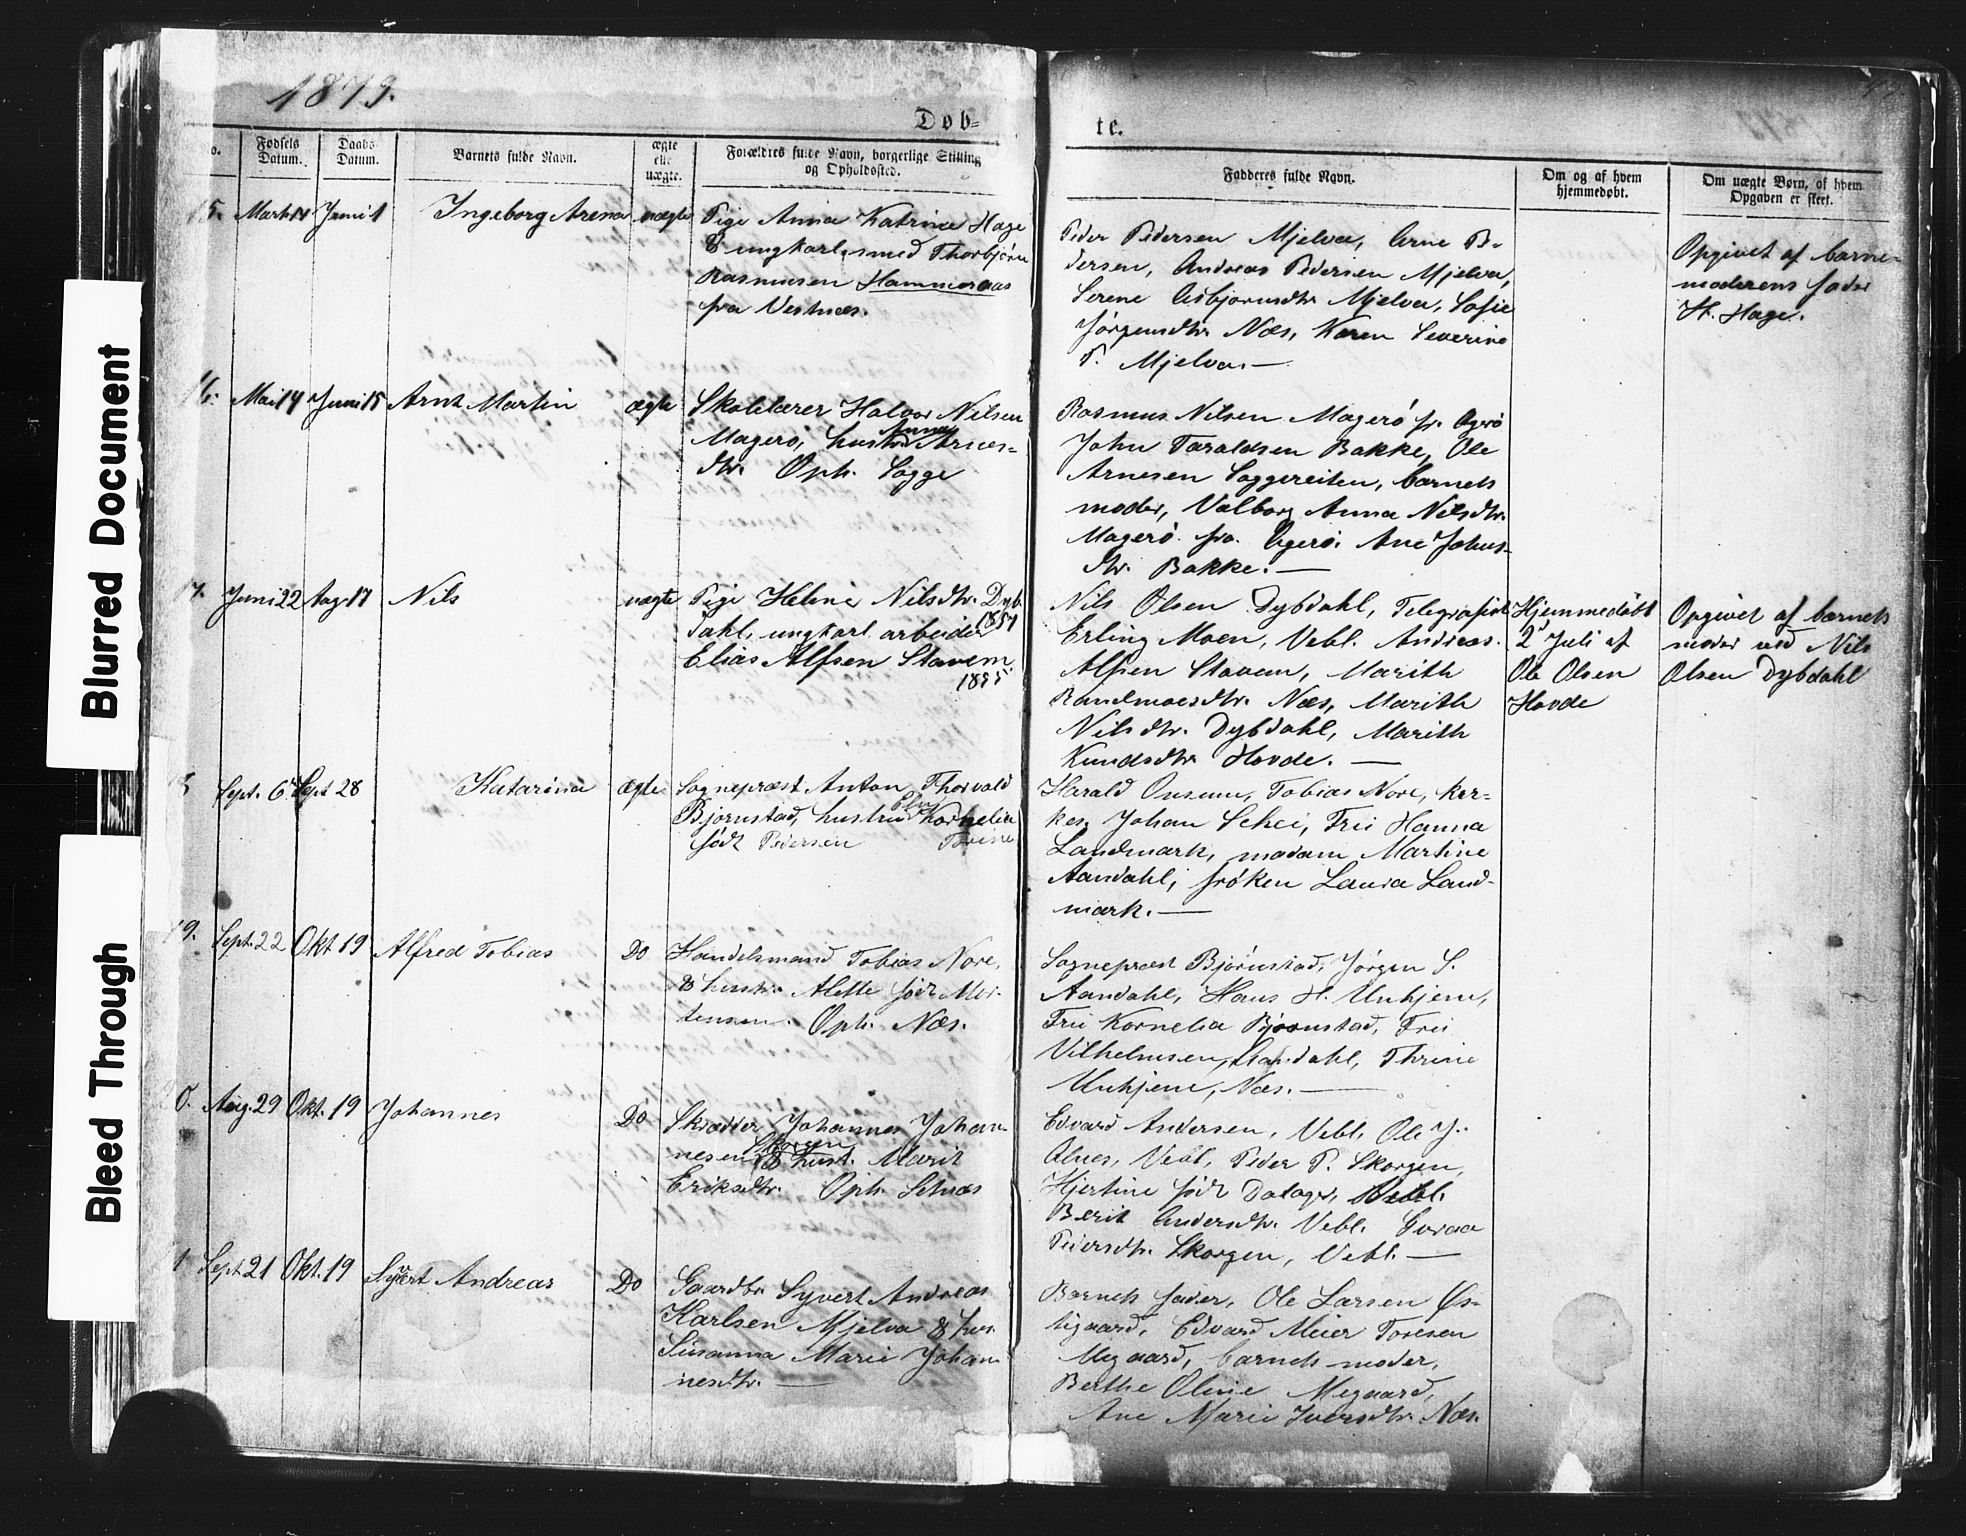 1879.
Døb-
te.
No.
Fødsels Datum.
Daabs Datum.
Barnets fulde Navn.
ægte elle uægte.
Forældres fulde Navn, borgerlige Stilling og Opholdssted.
Fadderes fulde Navn.
Om og af hvem hjemmedøbt.
Om uægte Børn, af hvem Opgaven er skeet.
15. Marts 14 Juni 1 Ingeborg Arena uægte
Pige Anna Katrine Hage
& ungkarl smed Thorbjørn
Rasmusen Hammeraas
fra Vestnæs.
Peder Pedersen Mjelva, Arne Pe-
dersen, Andreas Pedersen Mjelva,
Serene Asbjornsdtr. Mjelva, Sofie
Jørgensdtr. Næs, Karen Severine
P. Mjelva. —
Opgivet af barne-
moderens fader
H. Hage.
16. Mai 14 Juni 15 Arnt Martin ægte
Skolelærer Halvor Nilsen
Magerø, hustr. Anna Arnes-
dtr. Oph. Sogge
Rasmus Nilsen Magerø fr. Agerø
John Taraldsen Bakke, Ole
Arnesen Soggereiten, barnets
moder, Valborg Anna Nilsdtr.
Magerø fra Agerø. Ane Johns-
dtr. Bakke. —
17. Juni 22 Aug. 17 Nils uægte
Pige Helene Nilsdtr. Dyb-
dahl, ungkarl arbeider 1857
Elias Alfsen Stavem.
1855
Nils Olsen Dybdahl, Telegrafist
Erling Moen, Vebl. Andreas
Alfsen Stavem, Marith
Randmoesdtr. Næs, Marith
Nilsdtr. Dybdahl, Marith
Knudsdtr. Hovde. —
Hjemmedøbt
2d Juli af
Ole Olsen
Hovde
Opgivet af barnets
moder ved Nils
Olsen Dybdahl
18 Sept. 6 Sept 28 Katarina ægte
Sognepræst Anton Thorvald
Bjørnstad, hustru Kornelia
født Pedersen Trine
Harald Onsum, Tobias Nore, kir-
kes. Johan Schei, Fru Hanna
Landmark, madam Martine
Aandahl, frøken Laura Land-
mark. —
19. Sept. 22 Okt 19 Alfred Tobias Do
Handelsmand Tobias Nore,
& hustr. Alette født Mor-
tensen. Oph. Næs.
Sognepræst Bjørnstad, Jørgen S.
Aandahl, Hans H. Unhjem,
Fru Kornelia Bjørnstad, Fru
Vilhelmsen, Aandahl, Thrine
Unhjem, Næs. —
20. Aug. 29 Okt. 19 Johannes Do
Skrædder Johannes Johan-
nesen Skorgen & hust. Marit
Eriksdtr. Oph. Setnæs
Edvard Andersen, Vebl. Ole J.
Alnes, Vebl, Peder P. Skorgen,
Hjertine født Dalager, Vebl.
Berit Andersdtr. Vebl. Guraa
Pedersdtr. Skorgen, Vebl. —
21 Sept 21 Okt. 19 Syvert Andreas Do
Gaardbr. Syvert Andreas
Karlsen Mjelva & hus.
Susanna Marie Johan-
nesdtr. —
Barnets fader, Ole Larsen Øs-
tigaard, Edvard Meier Toresen
Megaard, barnets moder,
Berthe Oline Megaard,
Ane Marie Iversdtr. Næs.
Blurred Document
Bleed Through